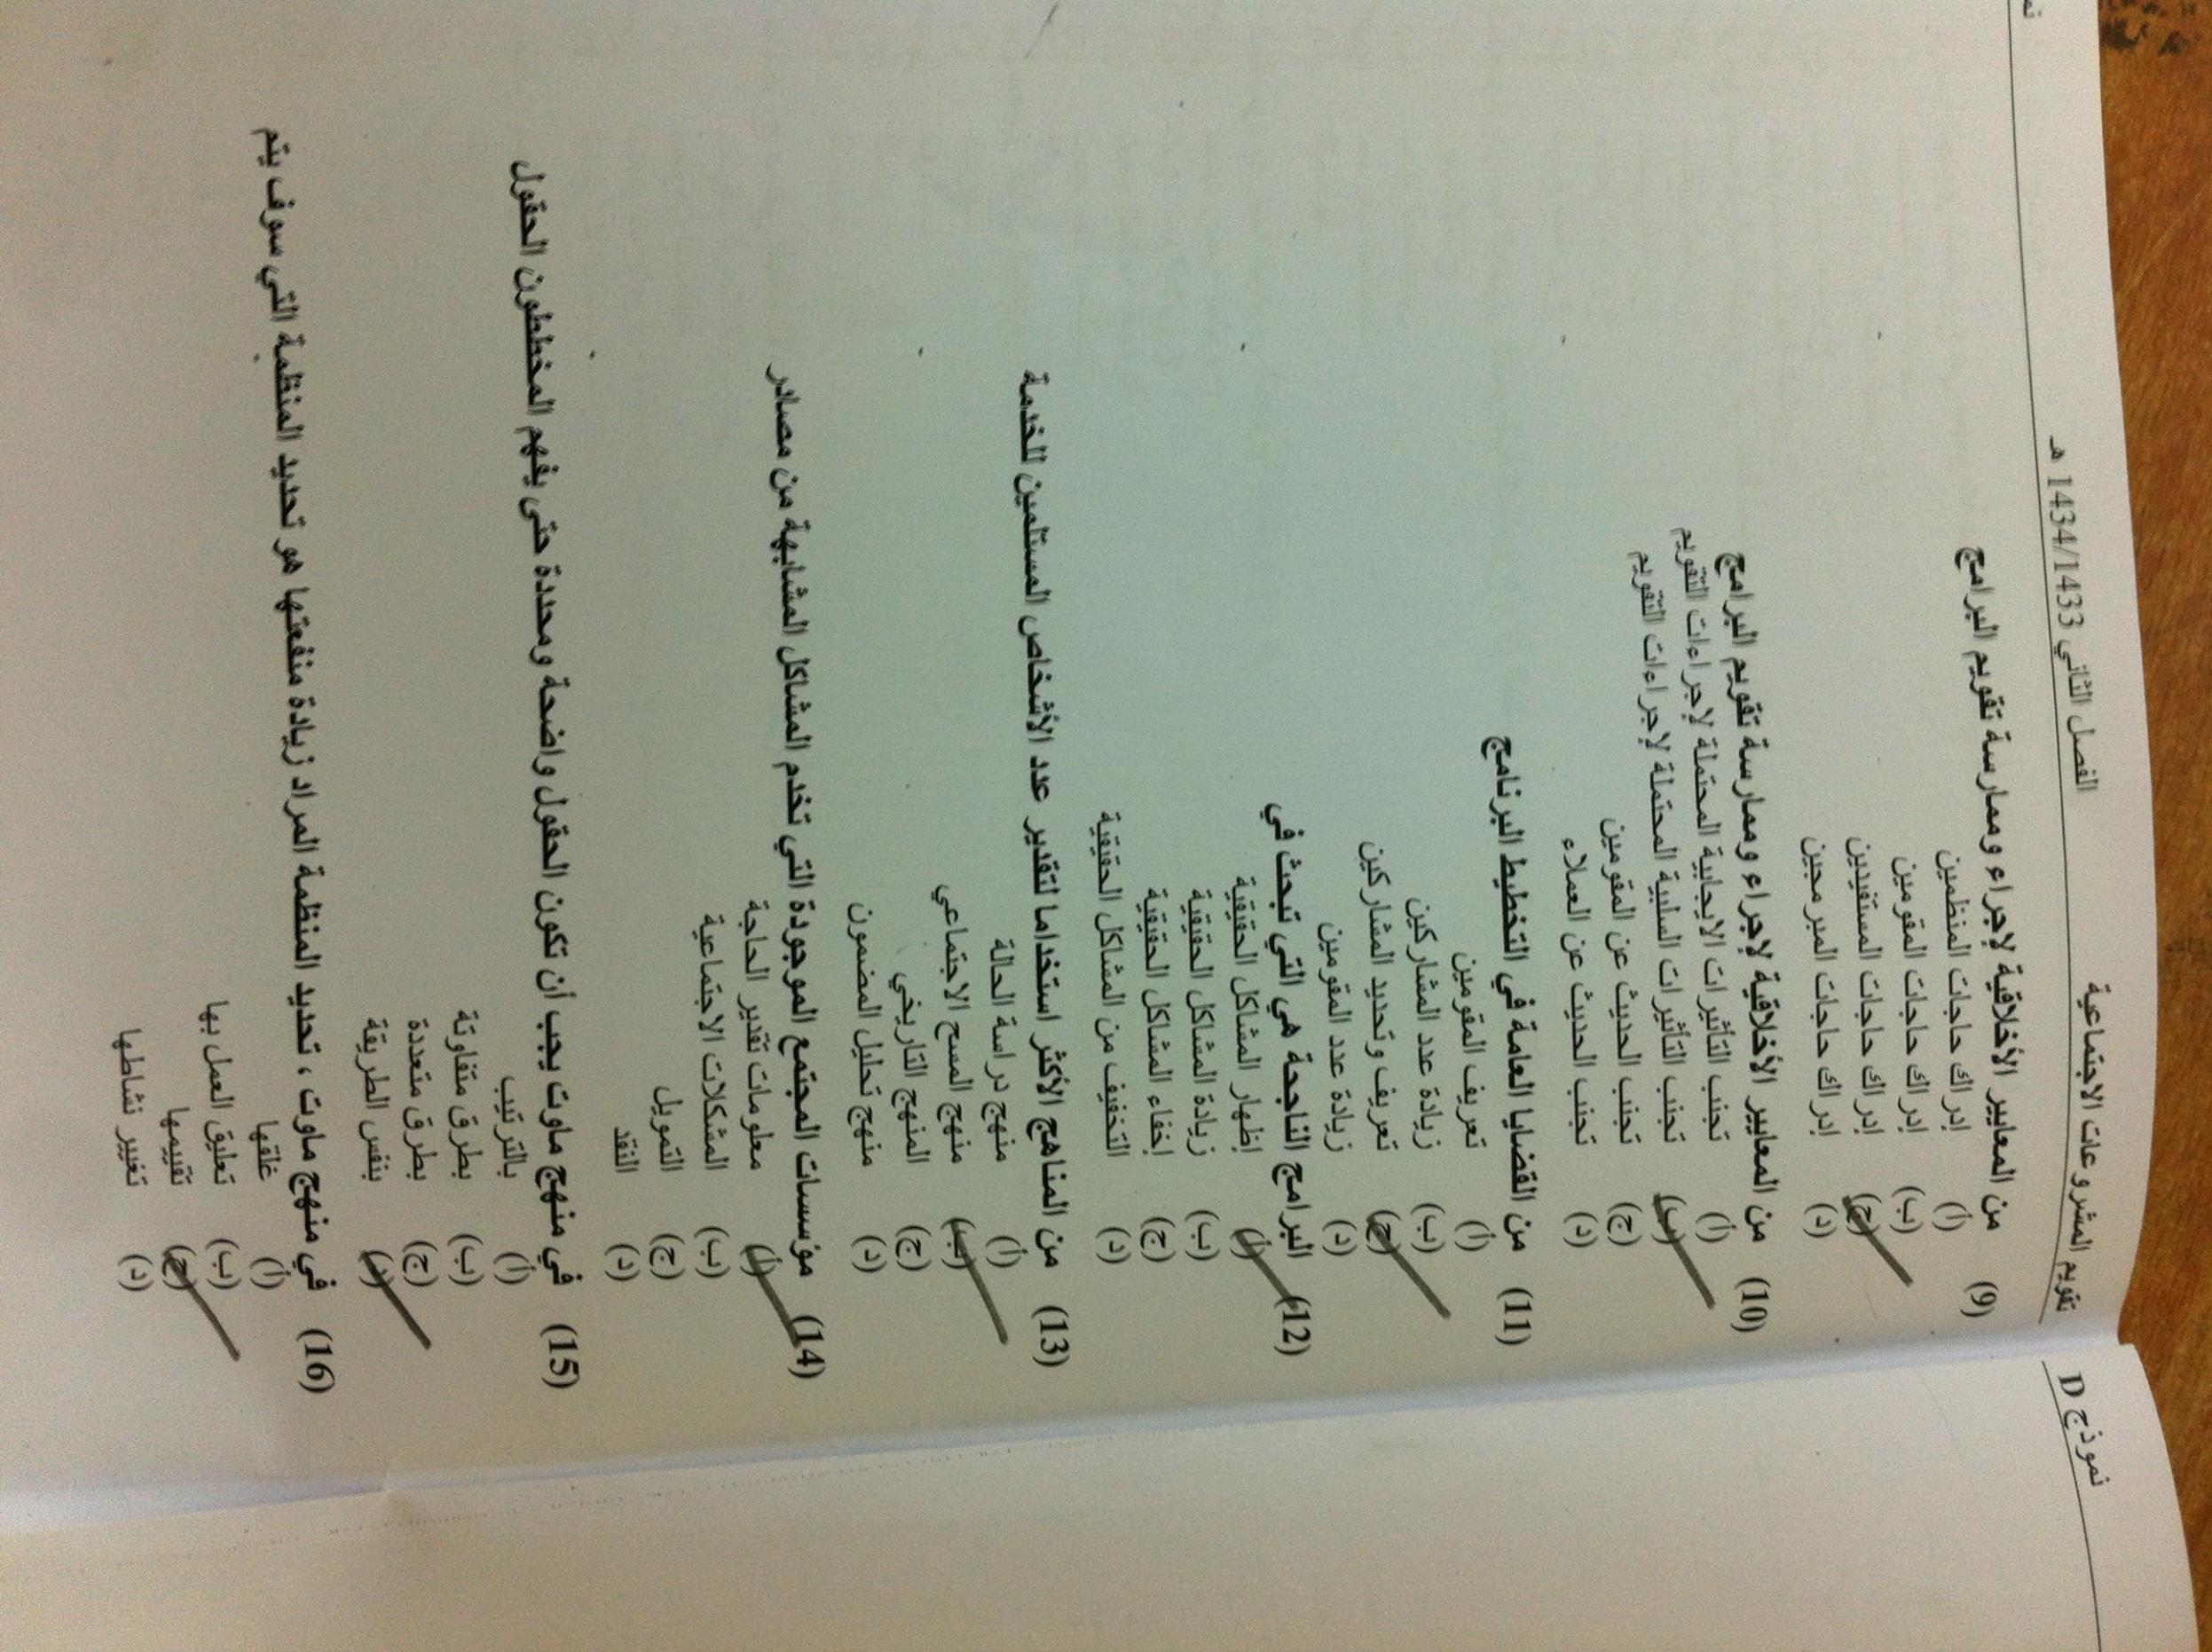 تقويم المشروعات الاجتماعية الفصل الثاني 1434/1433 هـ
نموذج D
(9) من المعايير الأخلاقية لإجراء وممارسة تقويم البرامج
(أ) إدراك حاجات المنظمين
(ب) إدراك حاجات المقومين
(ج) إدراك حاجات المستفيدين
(د) إدراك حاجات المبرمجين
(10) من المعايير الأخلاقية لإجراء وممارسة تقويم البرامج
(أ) تجنب التأثيرات الايجابية المحتملة لإجراءات التقويم
(ب) تجنب التأثيرات السلبية المحتملة لإجراءات التقويم
(ج) تجنب الحديث عن المقومين
(د) تجنب الحديث عن العملاء
(11) من القضايا العامة في التخطيط البرنامج
(أ) تعريف المقومين
(ب) زيادة عدد المشاركين
(ج) تعريف وتحديد المشاركين
(د) زيادة عدد المقومين
(12) البرامج الناجحة هي التي تبحث في
(أ) إظهار المشاكل الحقيقية
(ب) زيادة المشاكل الحقيقية
(ج) إخفاء المشاكل الحقيقية
(د) التخفيف من المشاكل الحقيقية
(13) من المناهج الأكثر استخداما لتقدير عدد الأشخاص المستلمين للخدمة
(أ) منهج دراسة الحالة
(ب) منهج المسح الاجتماعي
(ج) المنهج التاريخي
(د) منهج تحليل المضمون
(14) مؤسسات المجتمع الموجودة التي تخدم المشاكل المشابهة من مصادر
(أ) معلومات تقدير الحاجة
(ب) المشكلات الاجتماعية
(ج) التمويل
(د) النقد
(15) في منهج ماوت يجب أن تكون الحقول واضحة ومحددة حتى يفهم المخططون الحقول
(أ) بالترتيب
(ب) بطرق متفاوتة
(ج) بطرق متعددة
(د) بنفس الطريقة
(16) في منهج ماوت ، تحديد المنظمة المراد زيادة منفعتها هو تحديد المنظمة التي سوف يتم
(أ) غلقها
(ب) تعليق العمل بها
(ج) تقييمها
(د) تغيير نشاطها